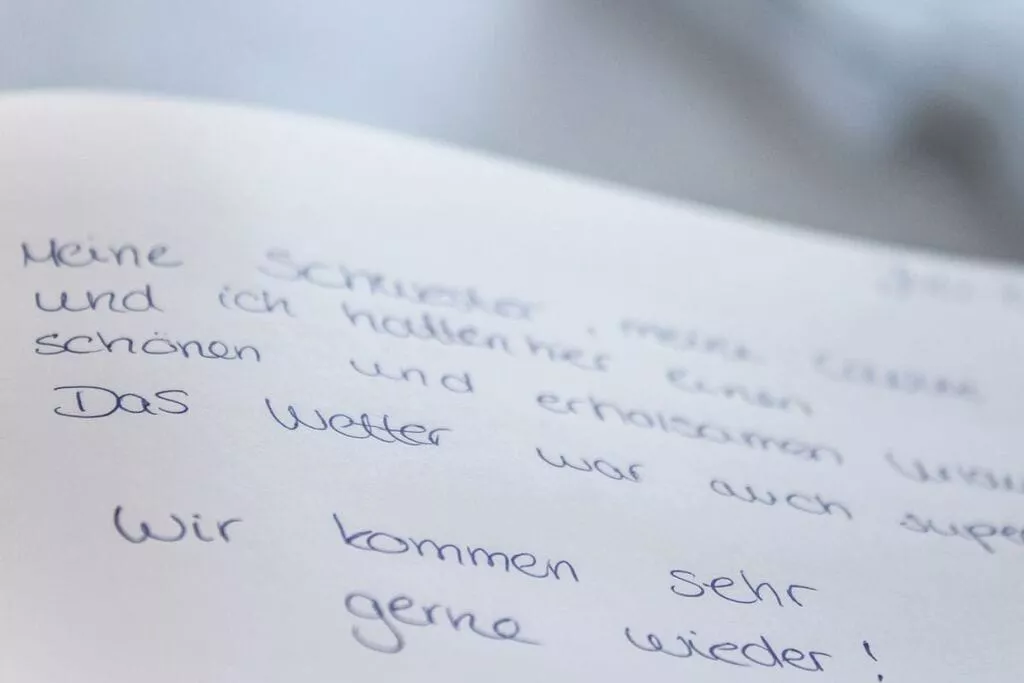 Meine Schwester, meine
und ich hatten hier einen
schönen und erholsamen
Das Wetter war auch super
Wir kommen sehr
gerne wieder!